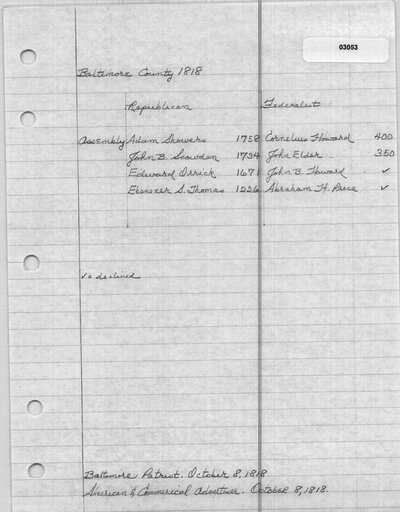 03053
Baltimore County 1818
Republican Federalist
Assembly Adam Showers 1758 Cornelius Howard 400
John B. Snowden 1734 John Elder 350
Edward Orrick 1671 John B. Howard ✓
Ebenezer S. Thomas 1226 Abraham H. Price ✓
✓= declined
Baltimore Patriot. October 8, 1818
American & Commerical Advertiser. October 8, 1818.